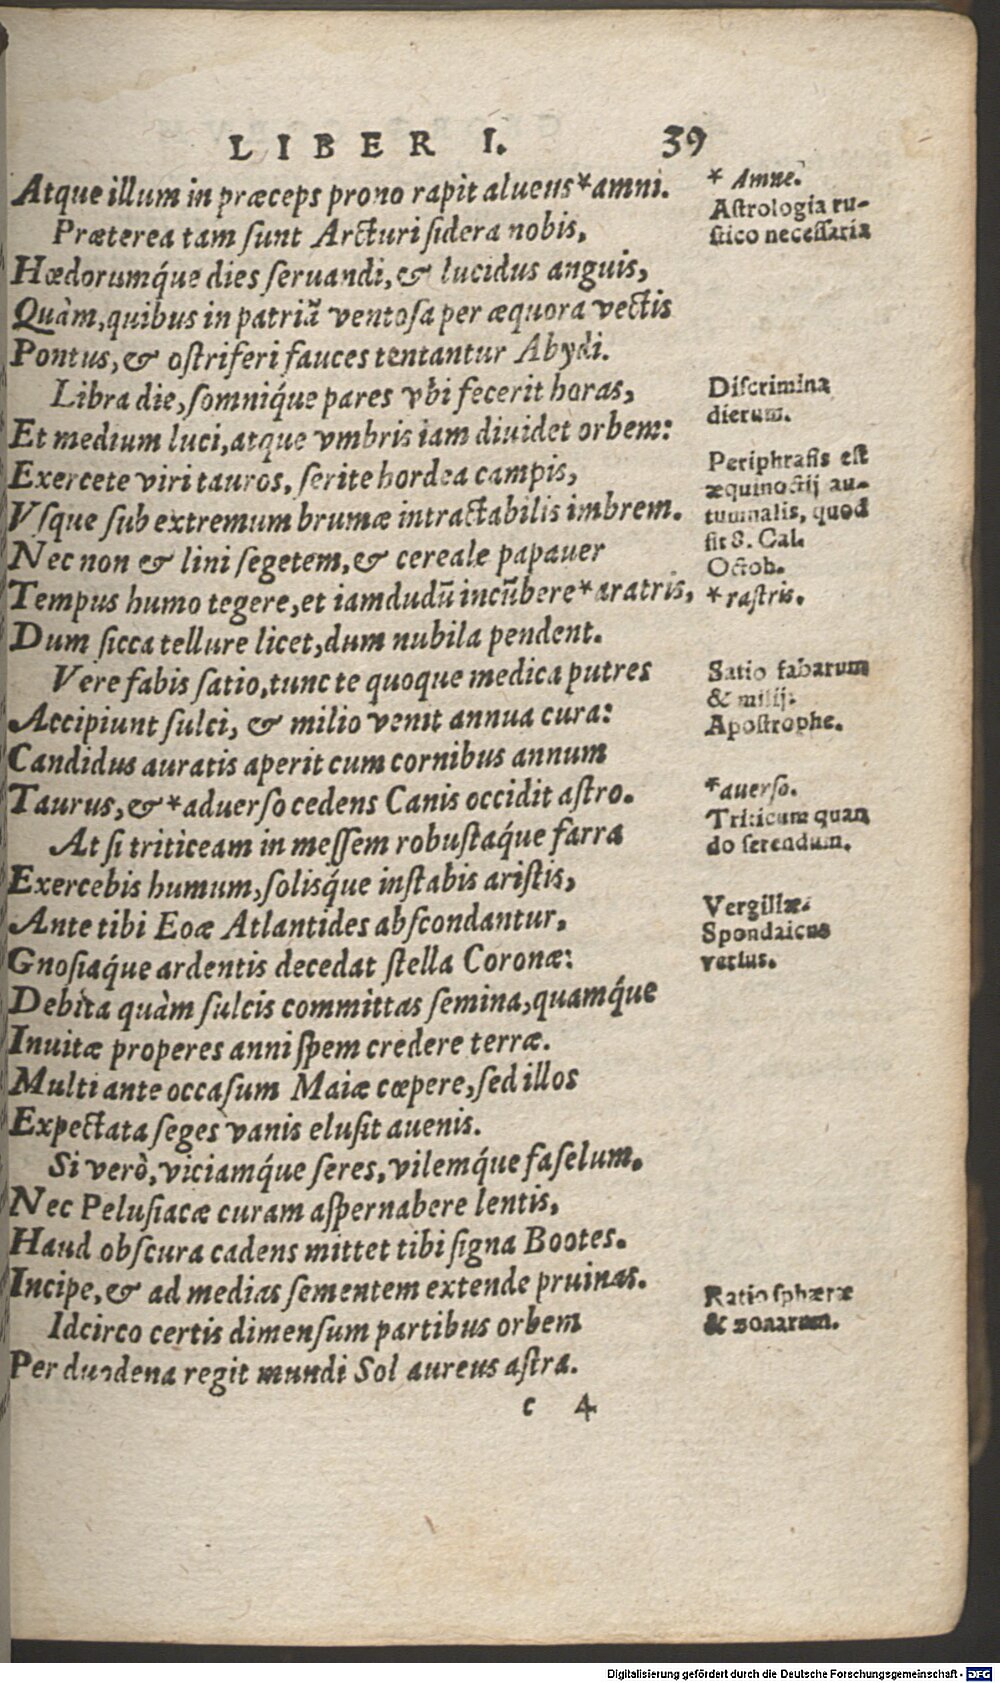 LIBER I. 39
Atque illum in præceps prono rapit alueus*amni.
Præterea tam sunt Arcturi sidera nobis,
Hœdorumq́ue dies seruandi, & lucidus anguis,
Quàm, quibus in patriã ventosa per æquora vectis
Pontus, & ostriferi fauces tentantur Abydi.
Libra die, somniq́ue pares vbi fecerit horas,
Et medium luci, atque vmbris iam diuidet orbem:
Exercete viri tauros, serite hordea campis,
Vsque sub extremum brumæ intractabilis imbrem.
Nec non & lini segetem, & cereale papauer
Tempus humo tegere, et iamdudũ incũbere*aratris,
Dum sicca tellure licet, dum nubila pendent.
Vere fabis satio, tunc te quoque medica putres
Accipiunt sulci, & milio venit annua cura:
Candidus auratis aperit cum cornibus annum
Taurus, &*aduerso cedens Canis occidit astro.
At si triticeam in messem robustaq́ue farra
Exercebis humum, solisq́ue instabis aristis,
Ante tibi Eoæ Atlantides abscondantur,
Gnosiaq́ue ardentis decedat stella Coronæ:
Debita quàm sulcis committas semina, quamq́ue
Inuitæ properes anni spem credere terræ.
Multi ante occasum Maiæ cœpere, sed illos
Expectata seges vanis elusit auenis.
Si verò, viciamq́ue seres, vilemq́ue faselum.
Nec Pelusiacæ curam aspernabere lentis,
Haud obscura cadens mittet tibi signa Bootes.
Incipe, & ad medias sementem extende pruinas.
Idcirco certis dimensum partibus orbem
Per duodena regit mundi Sol aureus astra.
c 4
* Amne.
Astrologia ru-
stico necessaria
Discrimina
dierum.
Periphrasis est
æquinoctij au-
tumnalis, quod
fit 8. Cal.
Octob.
* rastris.
Satio fabarum
& milij.
Apostrophe.
*auerso.
Triticum quan
do serendum.
Vergiliæ.
Spondaicus
versus.
Ratio sphæræ
& zonarum.
Digitalisierung gefördert durch die Deutsche Forschungsgemeinschaft - DFG